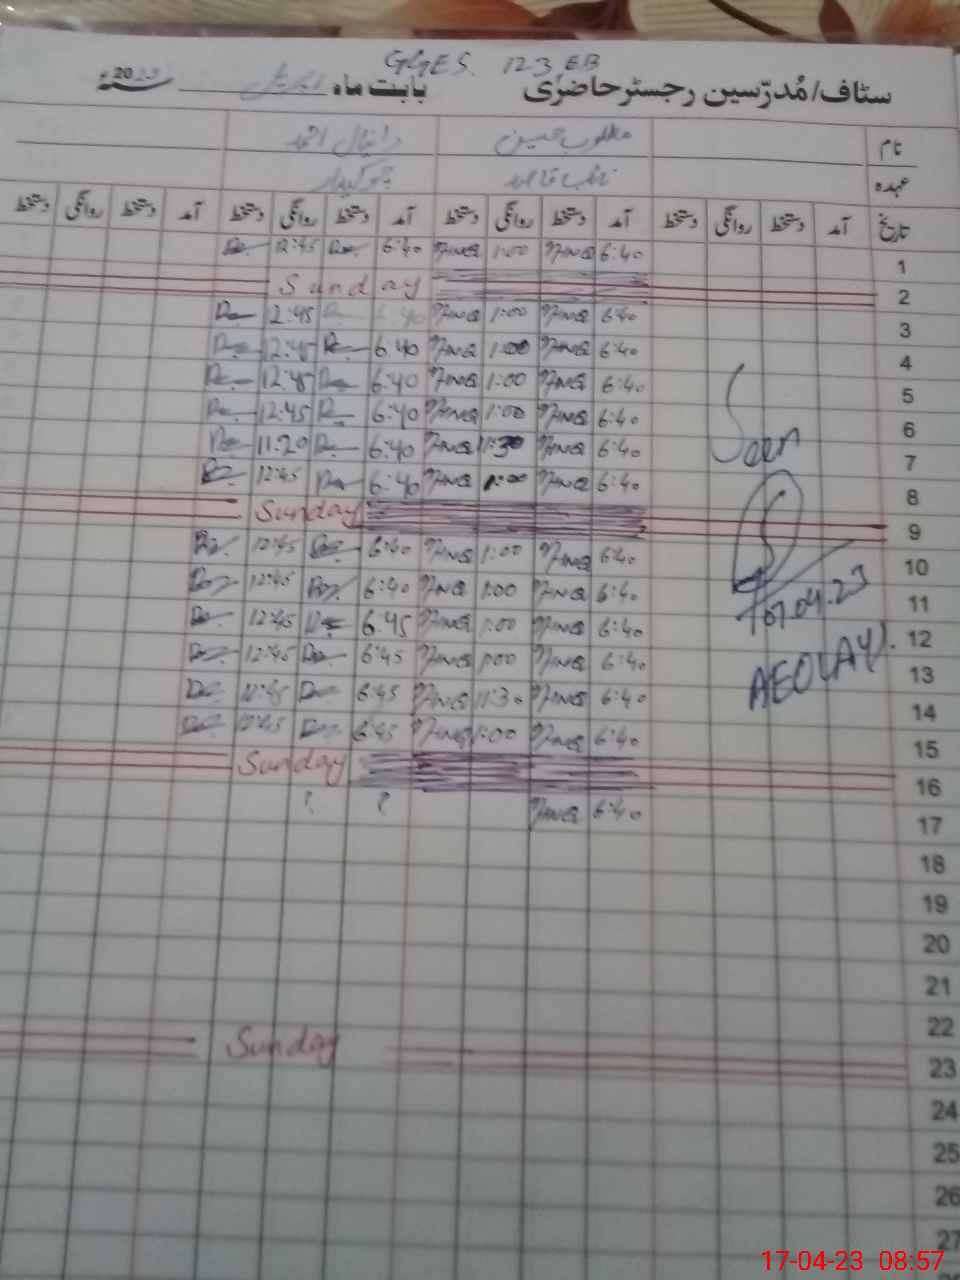 GGES. 123 EB
سٹاف/مُدرّسین رجسٹر حاضری بابت ماہ اپریل سنہ 2023ء
نام مطلوب حسین دانیال احمد
عہدہ نائب قاصد چوکیدار
تاریخ آمد دستخط روانگی دستخط آمد دستخط روانگی دستخط آمد دستخط روانگی دستخط آمد دستخط روانگی دستخط
12:45 6:40 1:00 6:40 1
Sunday 2
12:45 6:40 1:00 6:40 3
12:45 6:40 1:00 6:40 4
12:45 6:40 1:00 6:40 5
12:45 6:40 1:00 6:40 6
11:20 6:40 11:30 6:40 7
12:45 6:40 1:00 6:40 8
Sunday 9
12:45 6:40 1:00 6:40 10
12:45 6:40 1:00 6:40 11
12:45 6:45 1:00 6:40 12
12:45 6:45 1:00 6:40 13
6:45 11:30 6:40 14
12:45 6:45 1:00 6:40 15
Sunday 16
? ? 6:40 17
18
19
20
21
22
Sunday 23
24
25
26
27
Seen
07.04.23
AEO
17-04-23 08:57